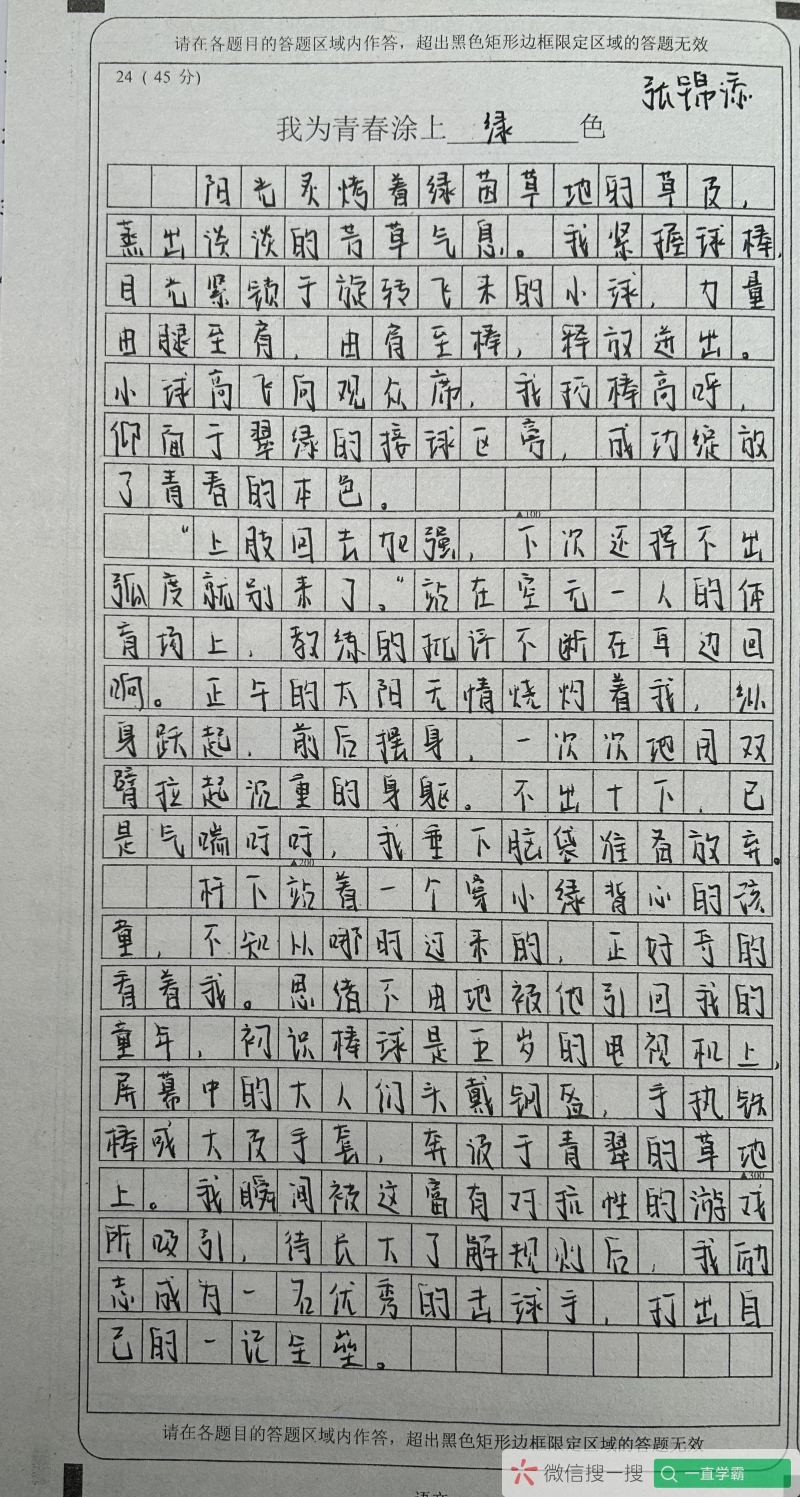 请在各题目的答题区域内作答，超出黑色矩形边框限定区域的答题无效
24（45分）
张锦添
我为青春涂上 绿 色
阳光炙烤着绿茵草地的草皮，
蒸出淡淡的芳草气息。我紧握球棒，
目光紧锁于旋转飞来的小球，力量
由腿至肩，由肩至棒，释放迸出。
小球高飞向观众席，我扔棒高呼，
仰面于翠绿的接球区旁，成功绽放
了青春的本色。
▲100
“上肢回去加强，下次还挥不出
弧度就别来了。”站在空无一人的体
育场上，教练的批评不断在耳边回
响。正午的太阳无情烧灼着我，纵
身跃起，前后摆身，一次次地用双
臂拉起沉重的身躯。不出十下，已
是气喘吁吁，我垂下脑袋准备放弃。
▲200
杆下站着一个穿小绿背心的孩
童，不知从哪时过来的，正好奇的
看着我。思绪不由地被他引回我的
童年，初识棒球是五岁的电视机上，
屏幕中的大人们头戴钢盔，手执铁
棒或大皮手套，奔波于青翠的草地
▲300
上。我瞬间被这富有对抗性的游戏
所吸引，待长大了解规则后，我励
志成为一名优秀的击球手，打出自
己的一记全垒。
请在各题目的答题区域内作答，超出黑色矩形边框限定区域的答题无效
微信搜一搜
一直学霸